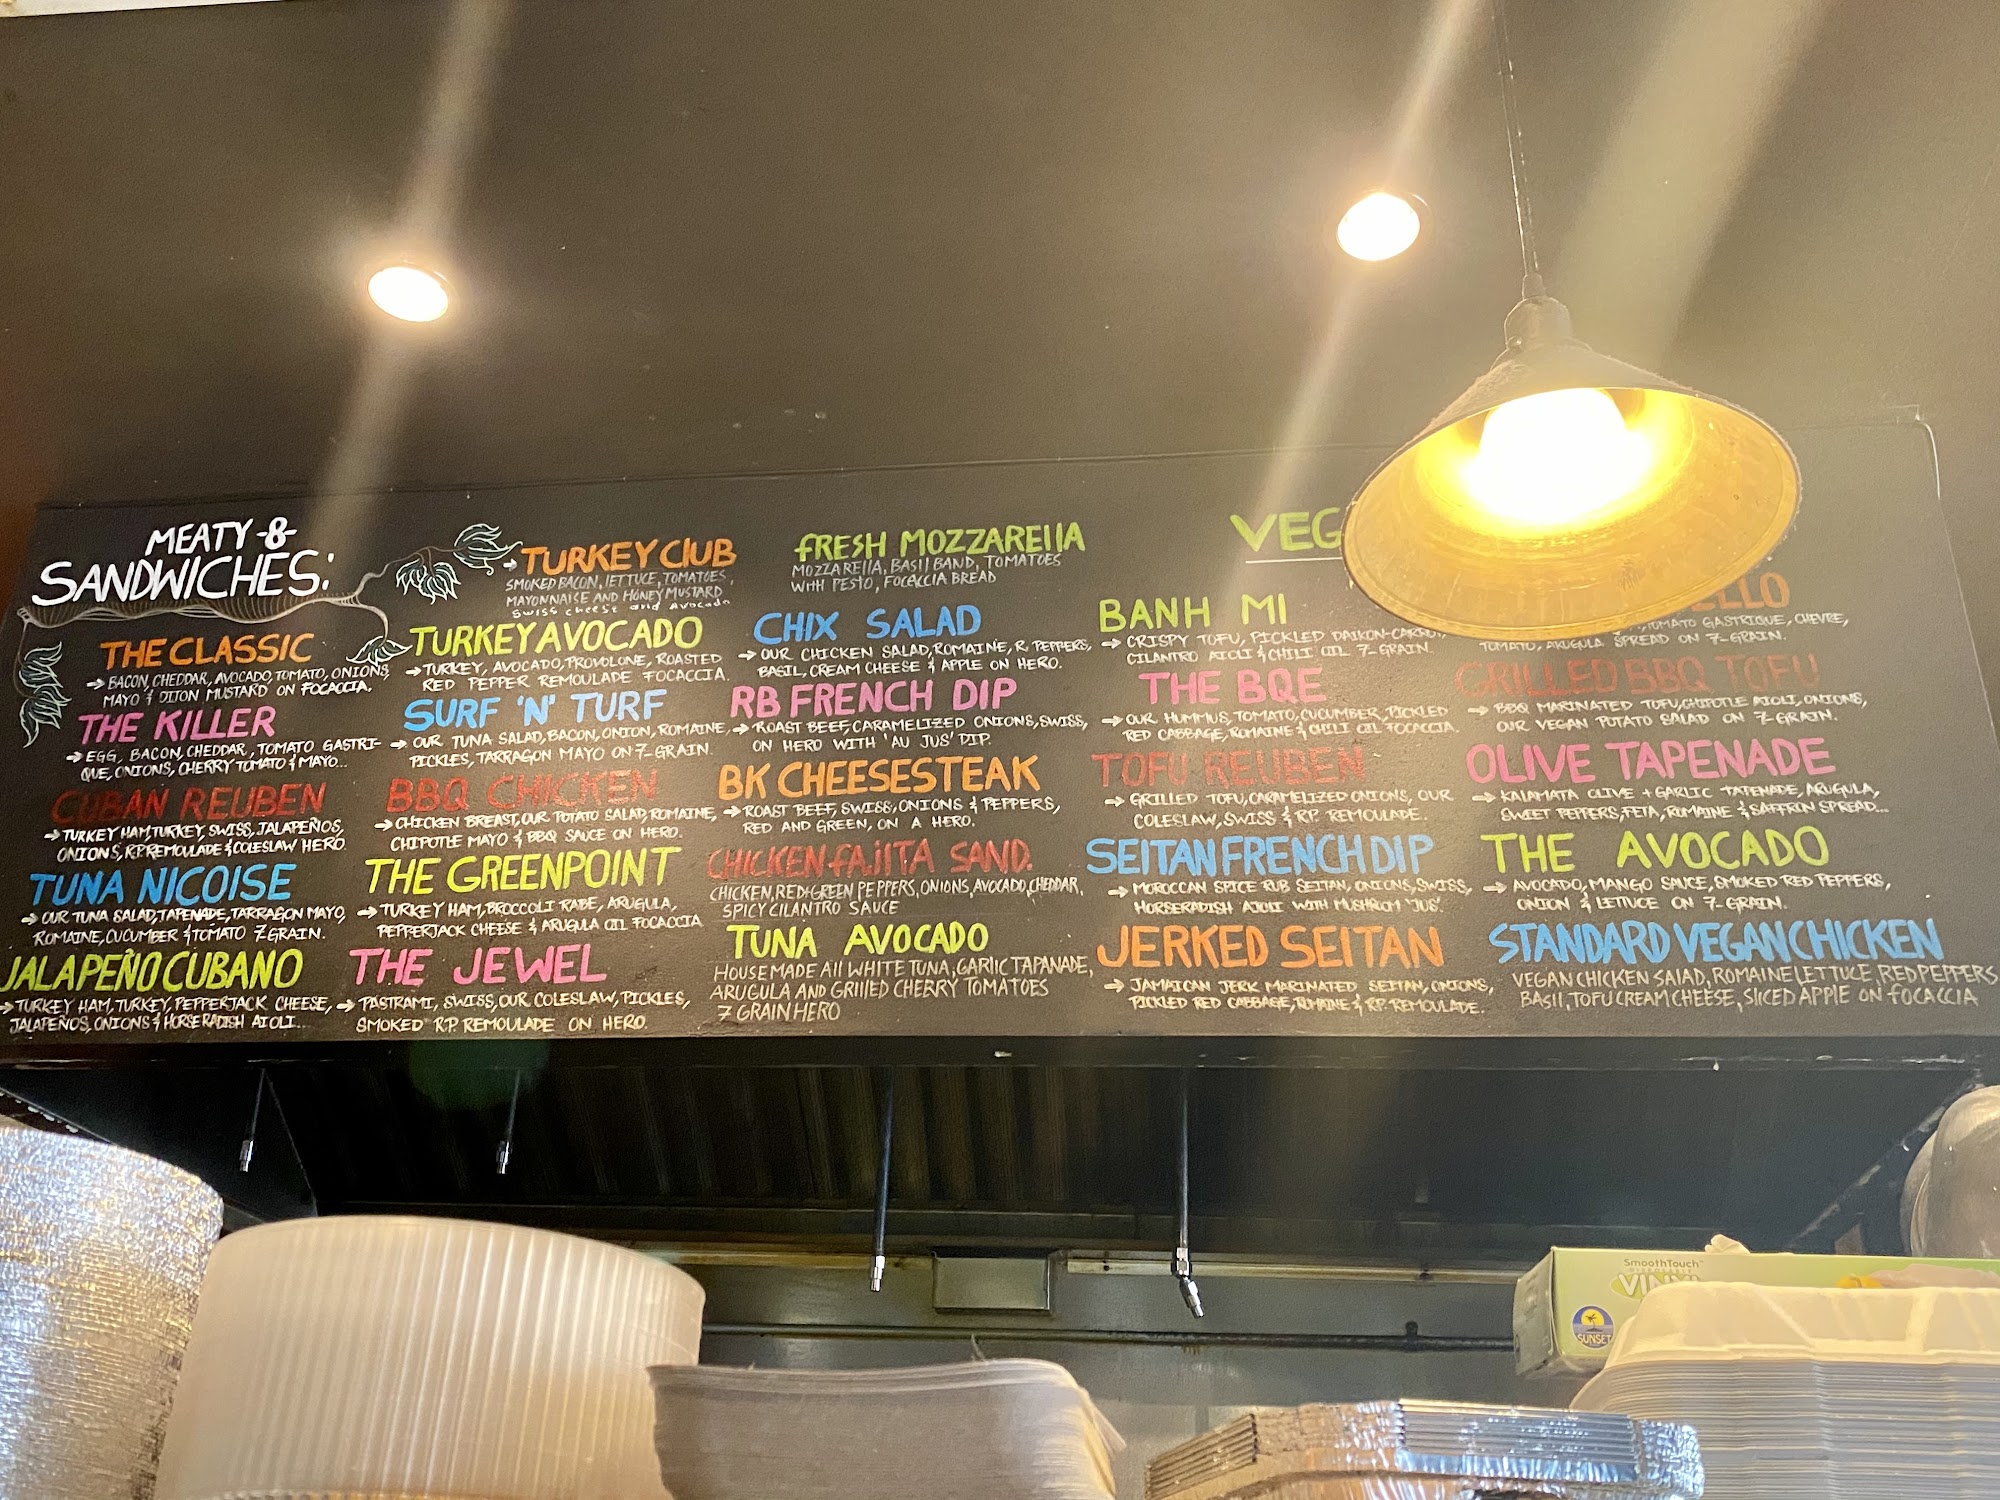 MEATY -&-
SANDWICHES:
THE CLASSIC
→ BACON, CHEDDAR, AVOCADO, TOMATO, ONIONS,
MAYO & DIJON MUSTARD ON FOCACCIA.
THE KILLER
→ EGG, BACON, CHEDDAR, TOMATO GASTRI-
QUE, ONIONS, CHERRY TOMATO & MAYO...
CUBAN REUBEN
→ TURKEY HAM, TURKEY, SWISS, JALAPEÑOS,
ONIONS, R.P. REMOULADE & COLESLAW HERO.
TUNA NICOISE
→ OUR TUNA SALAD, TAPENADE, TARRAGON MAYO,
ROMAINE, CUCUMBER & TOMATO 7 GRAIN.
JALAPEÑO CUBANO
→ TURKEY HAM, TURKEY, PEPPERJACK CHEESE,
JALAPEÑOS, ONIONS & HORSERADISH AIOLI...
→ TURKEY CLUB
SMOKED BACON, LETTUCE, TOMATOES,
MAYONNAISE AND HONEY MUSTARD
swiss cheese and Avocado
TURKEY AVOCADO
→ TURKEY, AVOCADO, PROVOLONE, ROASTED
RED PEPPER REMOULADE FOCACCIA.
SURF 'N' TURF
→ OUR TUNA SALAD, BACON, ONION, ROMAINE,
PICKLES, TARRAGON MAYO ON 7-GRAIN.
BBQ CHICKEN
→ CHICKEN BREAST, OUR POTATO SALAD, ROMAINE,
CHIPOTLE MAYO & BBQ SAUCE ON HERO.
THE GREENPOINT
→ TURKEY HAM, BROCCOLI RABE, ARUGULA,
PEPPERJACK CHEESE & ARUGULA OIL FOCACCIA
THE JEWEL
→ PASTRAMI, SWISS, OUR COLESLAW, PICKLES,
SMOKED R.P. REMOULADE ON HERO.
FRESH MOZZARELLA
MOZZARELLA, BASIL BAND, TOMATOES
WITH PESTO, FOCACCIA BREAD
CHIX SALAD
→ OUR CHICKEN SALAD, ROMAINE, R. PEPPERS,
BASIL, CREAM CHEESE & APPLE ON HERO.
RB FRENCH DIP
→ ROAST BEEF, CARAMELIZED ONIONS, SWISS,
ON HERO WITH 'AU JUS' DIP.
BK CHEESESTEAK
→ ROAST BEEF, SWISS, ONIONS & PEPPERS,
RED AND GREEN, ON A HERO.
CHICKEN FAJITA SAND.
CHICKEN, RED & GREEN PEPPERS, ONIONS, AVOCADO, CHEDDAR,
SPICY CILANTRO SAUCE
TUNA AVOCADO
HOUSEMADE ALL WHITE TUNA, GARLIC TAPANADE,
ARUGULA AND GRILLED CHERRY TOMATOES
7 GRAIN HERO
VEG
BANH MI
→ CRISPY TOFU, PICKLED DAIKON-CARROT,
CILANTRO AIOLI & CHILI OIL 7-GRAIN.
THE BQE
→ OUR HUMMUS, TOMATO, CUCUMBER, PICKLED
RED CABBAGE, ROMAINE & CHILI OIL FOCACCIA.
TOFU REUBEN
→ GRILLED TOFU, CARAMELIZED ONIONS, OUR
COLESLAW, SWISS & R.P. REMOULADE.
SEITAN FRENCH DIP
→ MOROCCAN SPICE RUB SEITAN, ONIONS, SWISS,
HORSERADISH AIOLI WITH MUSHROM 'JUS'.
JERKED SEITAN
→ JAMAICAN JERK MARINATED SEITAN, ONIONS,
PICKLED RED CABBAGE, ROMAINE & R.P. REMOULADE.
ELLO
TOMATO GASTRIQUE, CHEVRE,
TOMATO, ARUGULA SPREAD ON 7-GRAIN.
GRILLED BBQ TOFU
→ BBQ MARINATED TOFU, CHIPOTLE AIOLI, ONIONS,
OUR VEGAN POTATO SALAD ON 7-GRAIN.
OLIVE TAPENADE
→ KALAMATA OLIVE + GARLIC TAPENADE, ARUGULA,
SWEET PEPPERS, FETA, ROMAINE & SAFFRIN SPREAD...
THE AVOCADO
→ AVOCADO, MANGO SAUCE, SMOKED RED PEPPERS,
ONION & LETTUCE ON 7-GRAIN.
STANDARD VEGAN CHICKEN
VEGAN CHICKEN SALAD, ROMAINE LETTUCE, RED PEPPERS
BASIL, TOFU CREAM CHEESE, SLICED APPLE ON FOCACCIA
SmoothTouch
VINYL
SUNSET